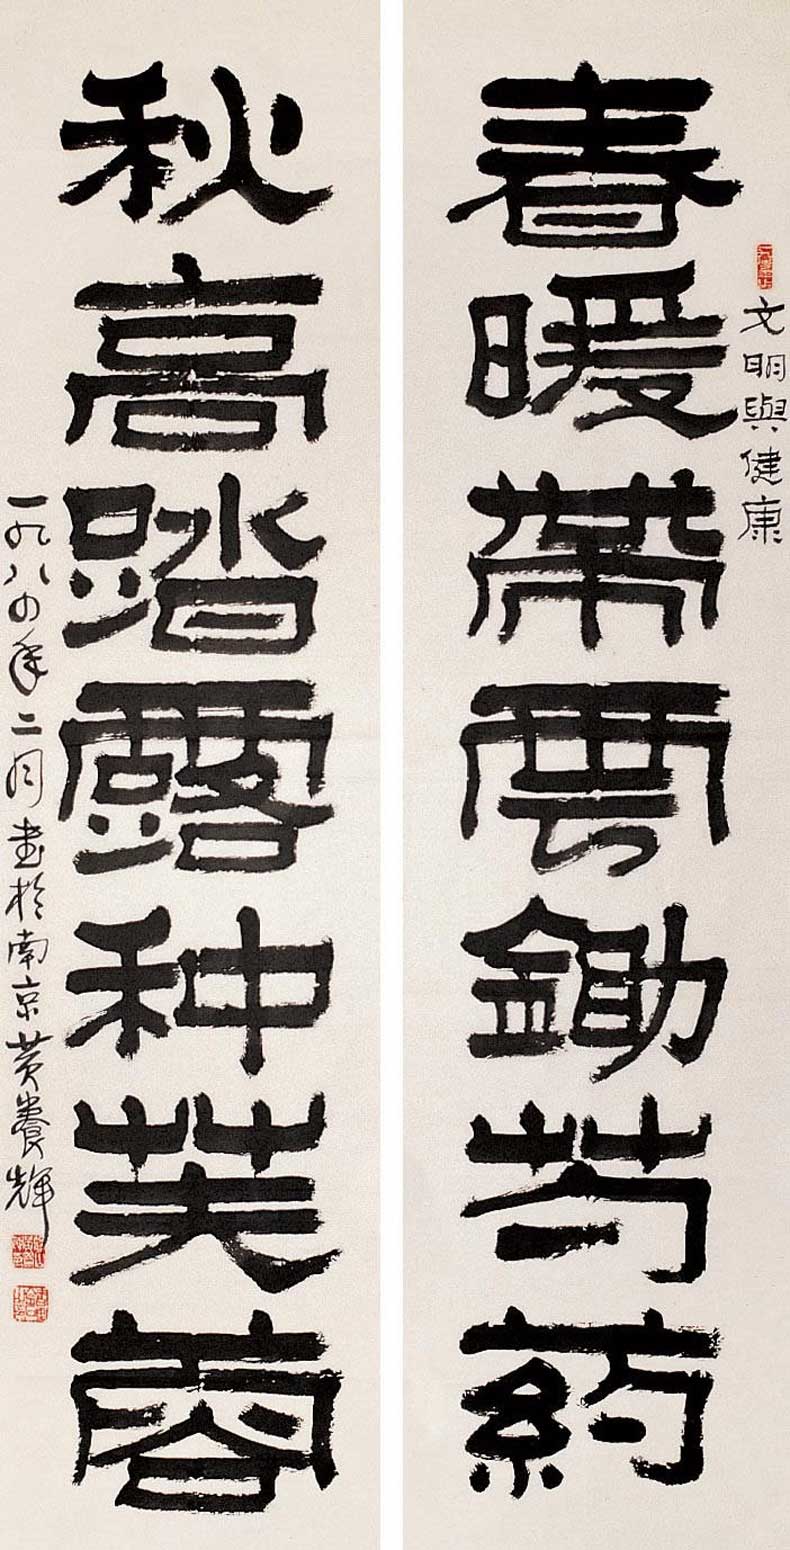 文明與健康
春暖帶雲鋤芍药
秋高踏露种芙蓉
一九八四年二月书於南京黄養輝